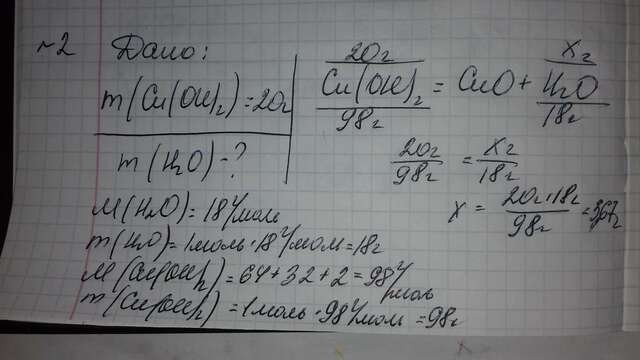 №2 Дано:
m(Cu(OH)₂)=20г
m(H₂O)-?
20г xг
Cu(OH)₂ = CuO + H₂O
98г 18г
20г/98г = xг/18г
x = 20г·18г/98г = 3,67г
M(H₂O)=18г/моль
m(H₂O)=1моль·18г/моль=18г
M(Cu(OH)₂)=64+32+2=98г/моль
m(Cu(OH)₂)=1моль·98г/моль=98г